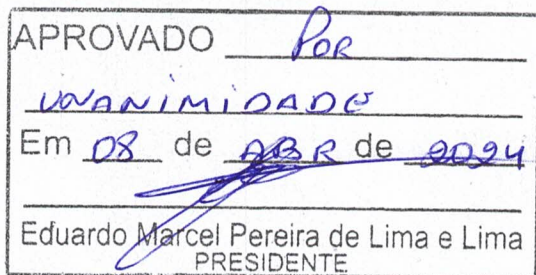 APROVADO POR
UNANIMIDADE
Em 08 de ABR de 2024
Eduardo Marcel Pereira de Lima e Lima
PRESIDENTE